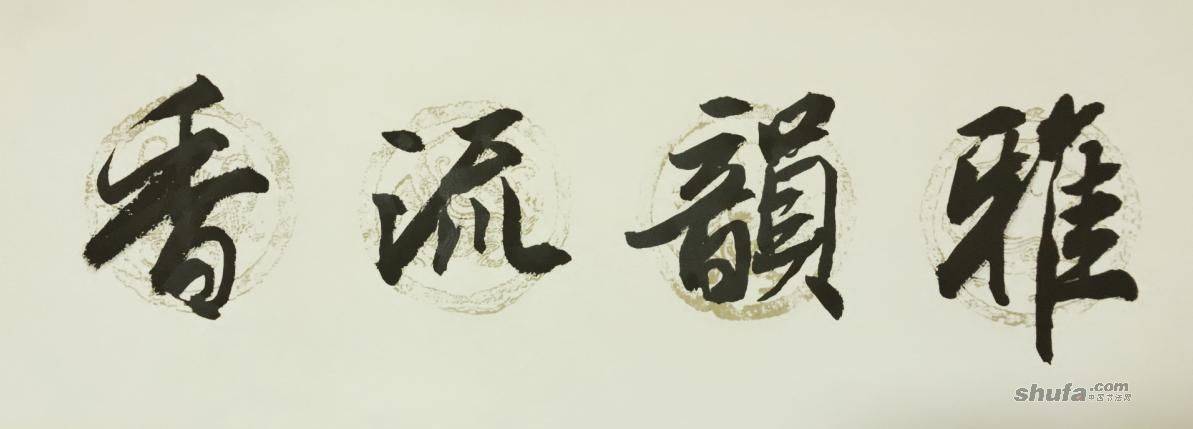 雅韻流香
shufa.com
中国书法网